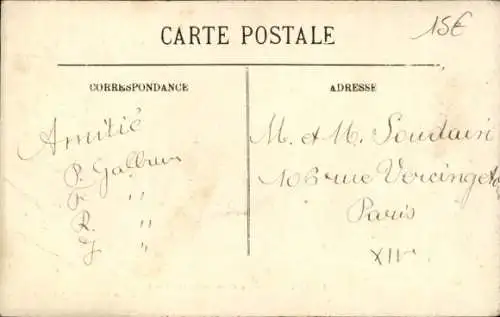 CARTE POSTALE
15€
CORRESPONDANCE
Amitié
P. Galbrun
F. "
R. "
J "
ADRESSE
M. et M.
106 rue Vercinget
Paris
XIV